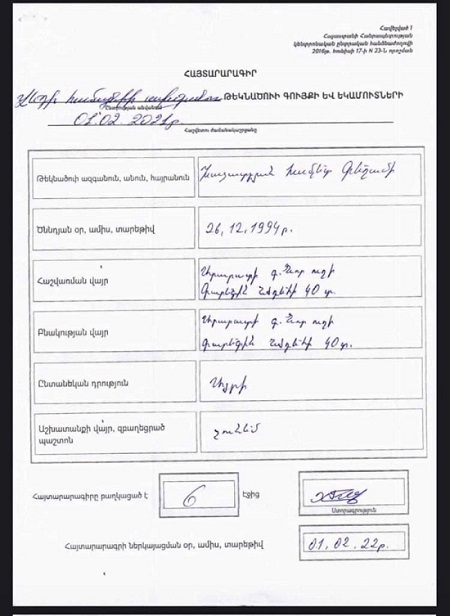 Հավելված 1
Հայաստանի Հանրապետության
կենտրոնական ընտրական հանձնաժողովի
2016թ. հունիսի 17-ի N 23-Ն որոշման
ՀԱՅՏԱՐԱՐԱԳԻՐ
ԹԵԿՆԱԾՈՒԻ ԳՈՒՅՔԻ ԵՎ ԵԿԱՄՈՒՏՆԵՐԻ
01.02 2021թ.
հաշվետու ժամանակաշրջանը
Թեկնածուի ազգանուն, անուն, հայրանուն
Խաչատրյան Համլետ
Ծննդյան օր, ամիս, տարեթիվ
26.12.1994թ.
Հաշվառման վայր
Արարատի գ. Նոր ուղի
Գարեգին Նժդեհի 40 տ.
Բնակության վայր
Արարատի գ. Նոր ուղի
Գարեգին Նժդեհի 40 տ.
Ընտանեկան դրություն
Այրի
Աշխատանքի վայր, զբաղեցրած
պաշտոն
չունեմ
Հայտարարագիրը բաղկացած է 6 էջից
Ստորագրություն
Հայտարարագրի ներկայացման օր, ամիս, տարեթիվ 01.02.22թ.